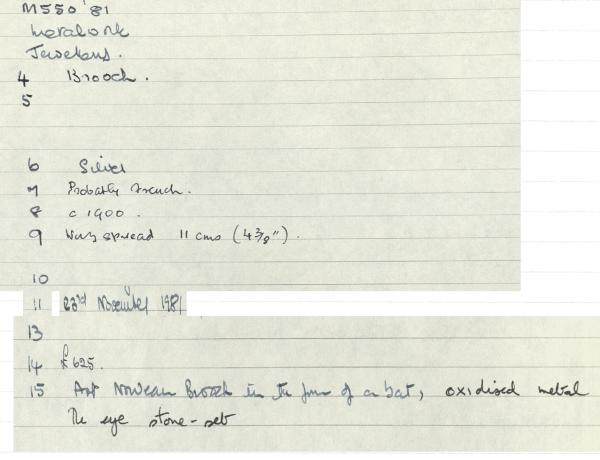 M550 '81
Metalwork
Jewellery.
4 Brooch.
5
6 Silver
7 Probably French.
8 c 1900.
9 Wing spread 11 cms (4 3/8")
10
11 23rd November 1981
13
14 £625.
15 Art Nouveau Brooch in the form of a bat, oxidised metal
The eye stone-set